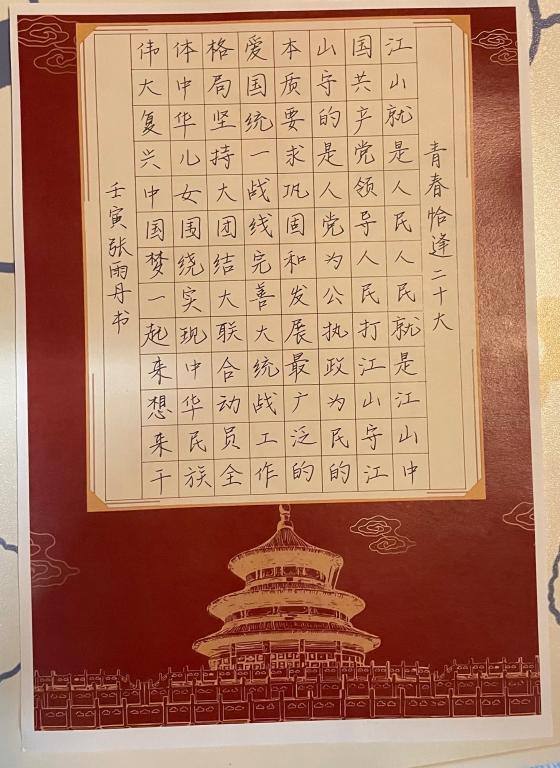 青春恰逢二十大
江山就是人民人民就是江山中
国共产党领导人民打江山守江
山守的是人党为公执政为民的
本质要求巩固和发展最广泛的
爱国统一战线完善大统战工作
格局坚持大团结大联合动员全
体中华儿女围绕实现中华民族
伟大复兴中国梦一起来想来干
壬寅张雨丹书